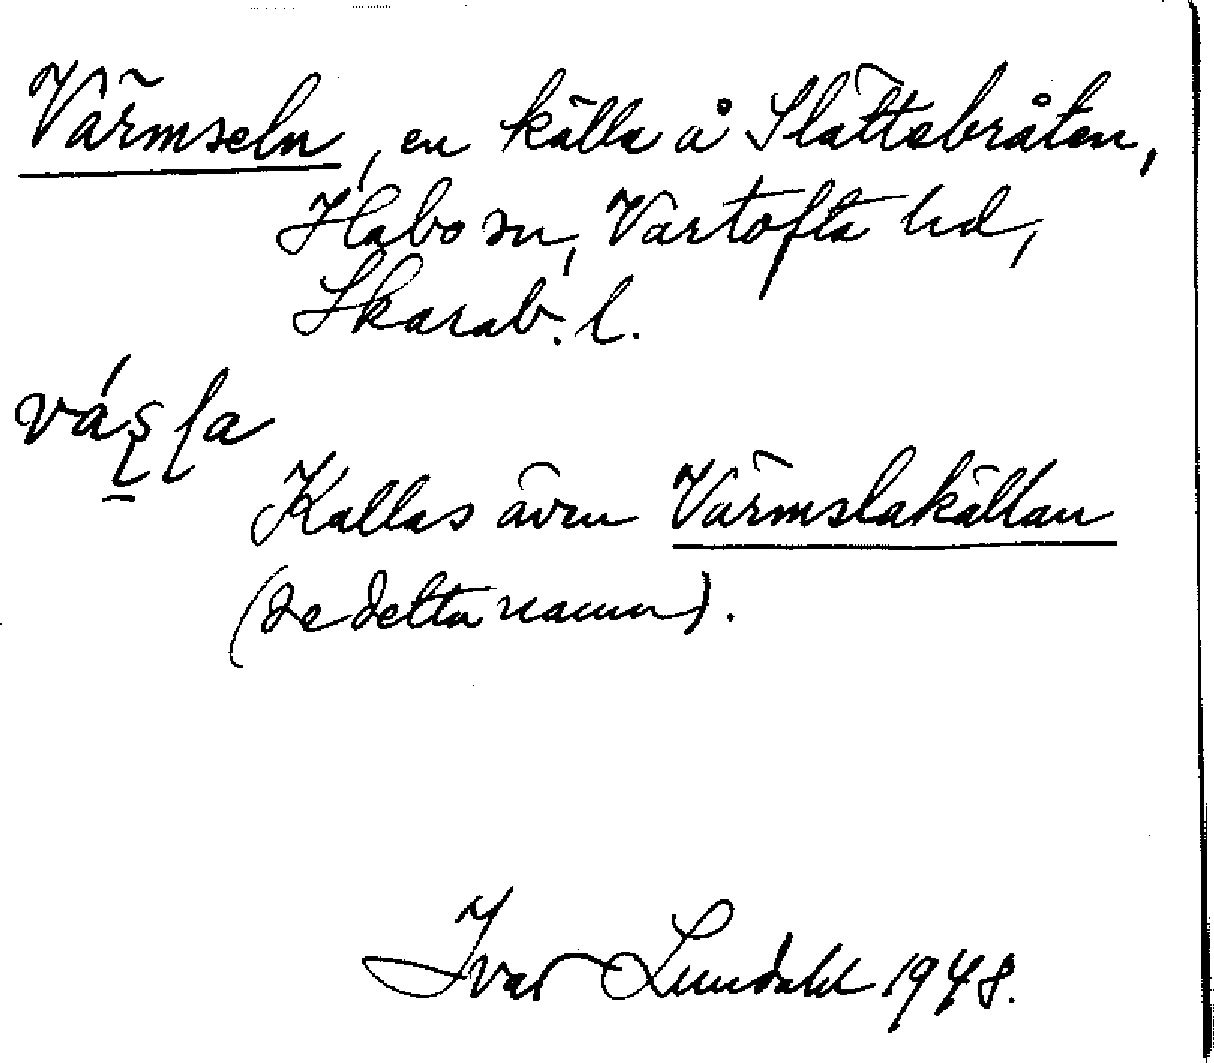 Värmseln, en källa å Slättebråten,
Habo sn, Vartofta hd,
Skarab. l.
Kallas även Värmslakällan
(se detta namn).
Ivar Lundahl 1948.